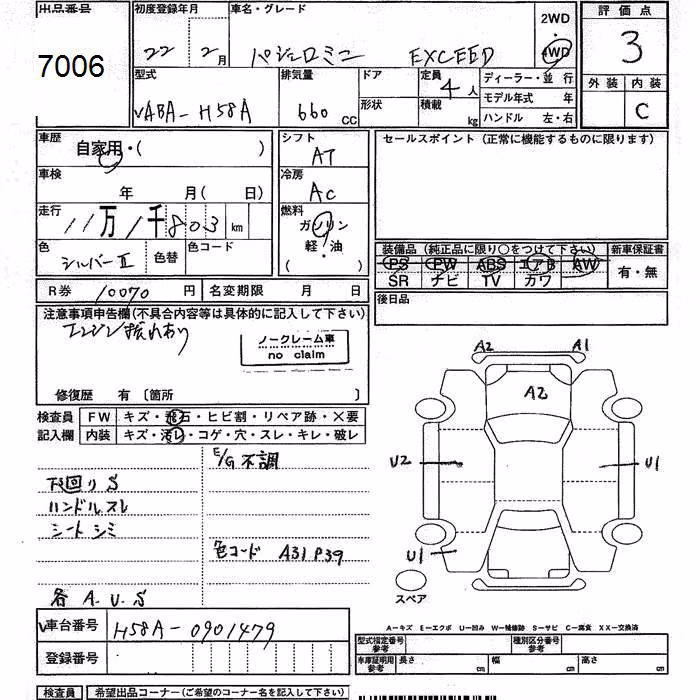 出品番号
7006
初度登録年月
22年 2月
車名・グレード
パジェロミニ EXCEED
2WD
4WD
評価点
3
外装 内装
C
型式
ABA-H58A
排気量
660 CC
ドア
形状
定員
4人
積載
kg
ディーラー・並行
モデル年式 年
ハンドル 左・右
車歴
自家用・( )
車検
年 月( 日)
走行
11万1千803 km
色
シルバーII
色替
色コード
シフト
AT
冷房
AC
燃料
ガソリン
軽・油
( )
セールスポイント (正常に機能するものに限ります)
装備品 (純正品に限り○をつけて下さい)
PS PW ABS エアB AW
SR ナビ TV カワ
新車保証書
有・無
後日品
R券 10070 円
名変期限 月 日
注意事項申告欄(不具合内容等は具体的に記入して下さい)
エンジン振れあり
ノークレーム車
no claim
修復歴 有 〔箇所 〕
検査員
記入欄
FW キズ・飛石・ヒビ割・リペア跡・×要
内装 キズ・汚レ・コゲ・穴・スレ・キレ・破レ
E/G不調
下回りS
ハンドルスレ
シートシミ
色コード A31P39
各A.U.S
A2 A1
A2
U2 U1
U1
スペア
A-キズ E-エクボ U-凹み W-補修跡 S-サビ C-腐食 XX-交換済
車台番号 H58A-0901479
登録番号
型式指定番号
参考
種別区分番号
参考
車庫証明用
参考
長さ cm 幅 cm 高さ cm
検査員 希望出品コーナー(ご希望のコーナー名を記入して下さい)